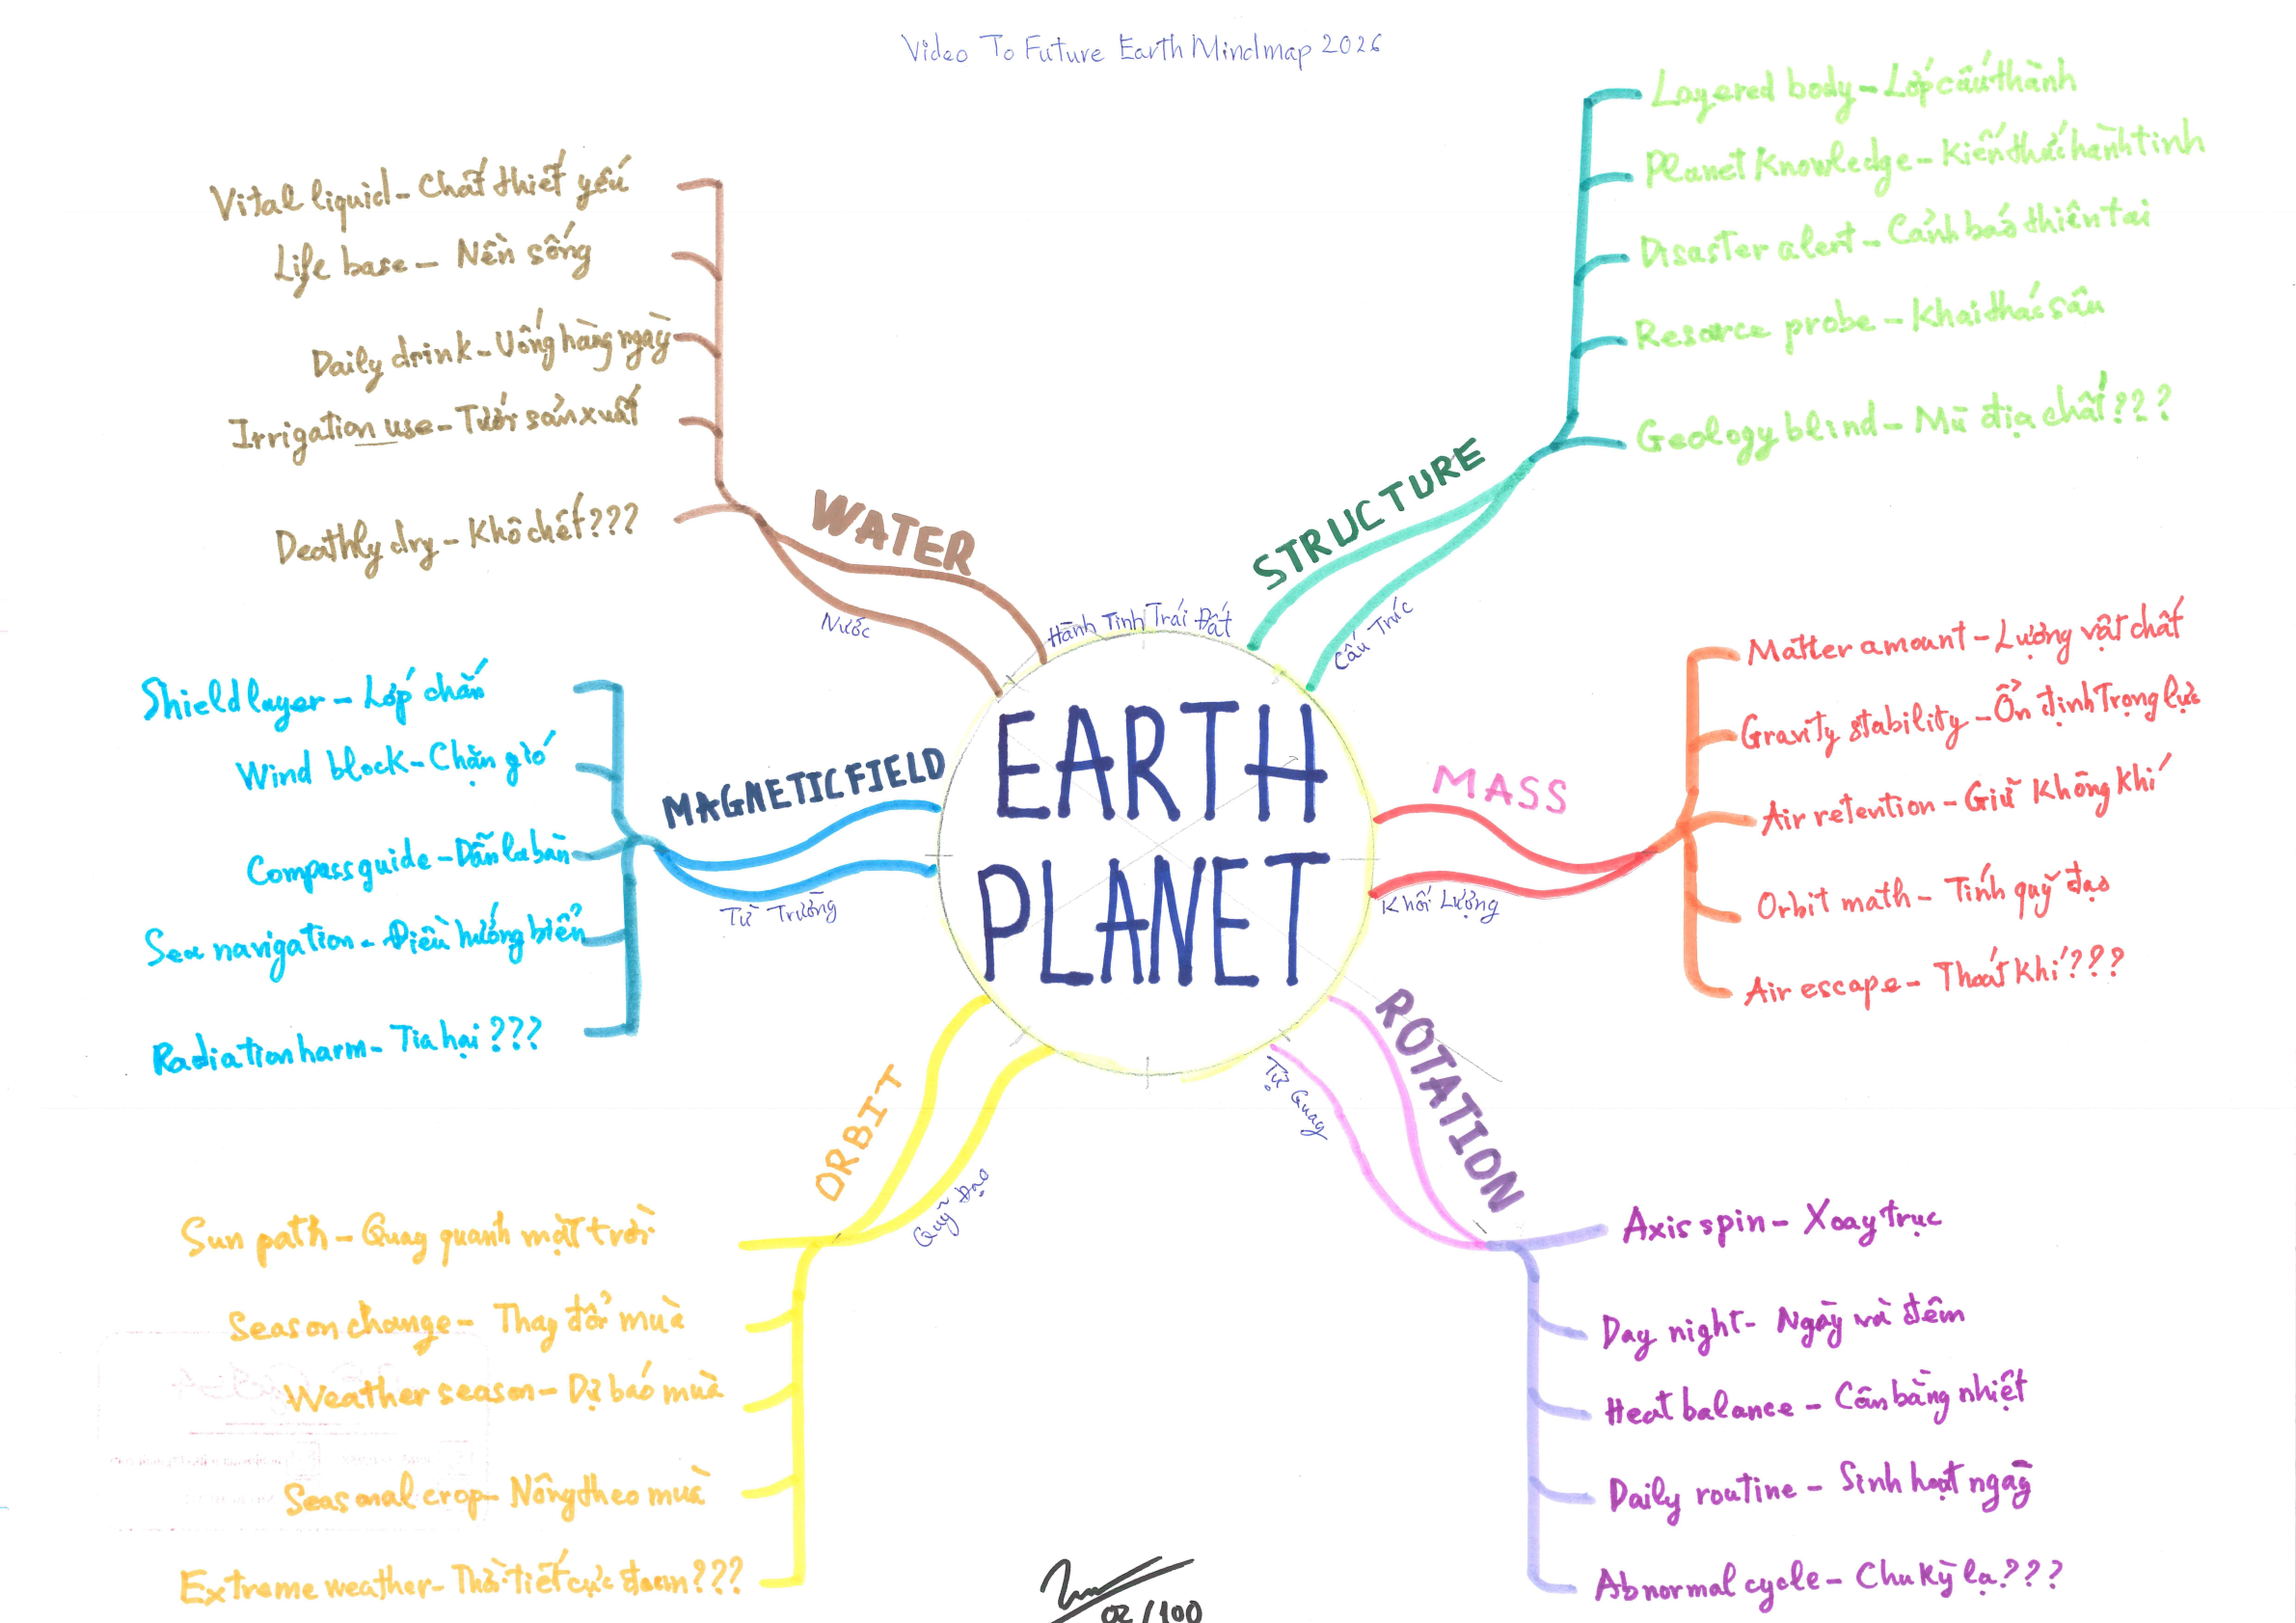 Video To Future Earth Mindmap 2026
EARTH
PLANET
Hành Tinh Trái Đất
STRUCTURE
Cấu Trúc
Layered body – Lớp cấu thành
Planet Knowledge – Kiến thức hành tinh
Disaster alert – Cảnh báo thiên tai
Resorce probe – Khai thác sâu
Geology blind – Mù địa chất???
MASS
Khối Lượng
Matter amount – Lượng vật chất
Gravity stability – Ổn định Trọng lực
Air retention – Giữ Không khí
Orbit math – Tính quỹ đạo
Air escape – Thoát Khí???
ROTATION
Tự Quay
Axis spin – Xoay trục
Day night – Ngày và đêm
Heat balance – Cân bằng nhiệt
Daily routine – Sinh hoạt ngày
Abnormal cycle – Chu Kỳ lạ???
ORBIT
Quỹ Đạo
Sun path – Quay quanh mặt trời
Season change – Thay đổi mùa
Weather season – Dự báo mùa
Seasonal crop – Nông theo mùa
Extreme weather – Thời tiết cực đoan???
MAGNETIC FIELD
Từ Trường
Shield layer – Lớp chắn
Wind block – Chặn gió
Compass guide – Dẫn la bàn
Sea navigation – Điều hướng biển
Radiation harm – Tia hại???
WATER
Nước
Vital liquid – Chất thiết yếu
Life base – Nền sống
Daily drink – Uống hàng ngày
Irrigation use – Tưới sản xuất
Deathly dry – Khô chết???
02/100